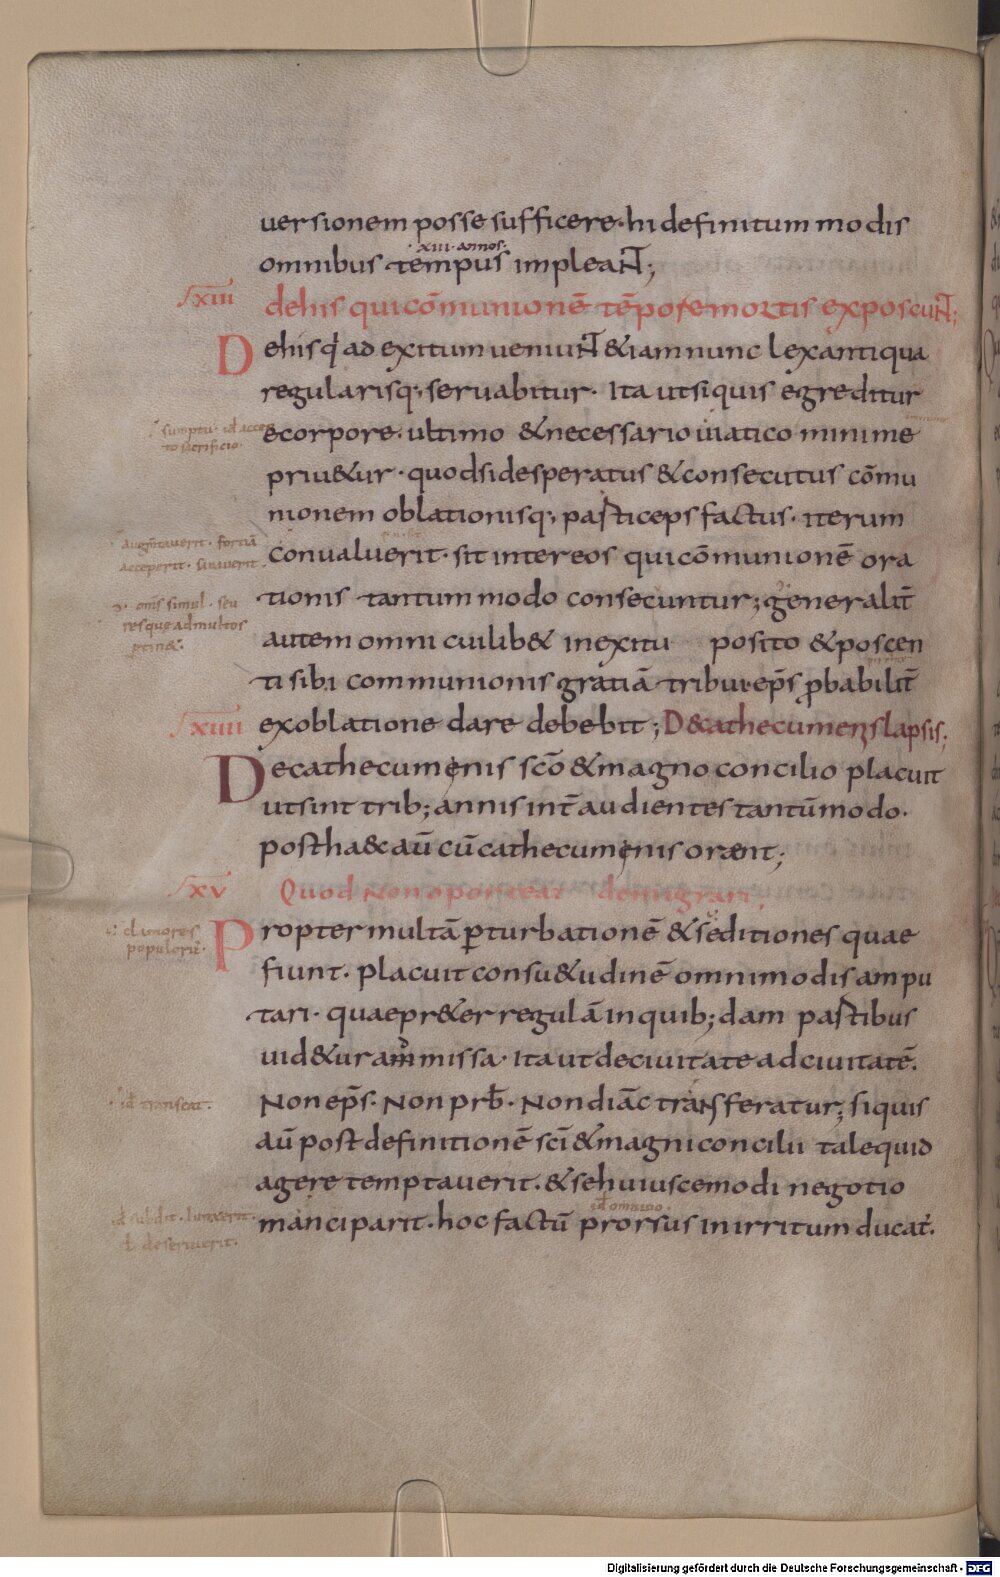 uersionem posse sufficere· hi definitum modis
·xiii·annos·
omnibus tempus impleant;
xiii
de his qui cōmunionē tēpore mortis exposcunt;
De his q̇ ad exitum ueniunt & iam nunc lex antiqua
regularisq; seruabitur· Ita ut si quis egreditur
sumptu· id accep
to sacrificio·
e corpore· ultimo & necessario uiatico minime
priu&ur· quod si desperatus & consecutus cōmu
nionem oblationisq; particeps factus· iterum
augm̄tauerit· fortiā
acceperit· sanauerit·
conualuerit· sit inter eos qui cōmunionē ora
om̄s simul· seu
res que ad multos
ptin&·
tionis tantummodo consecuntur; generalit̄
autem omni cuilib& in exitu posito & poscen
ti sibi communionis gratiā tribu& ep̄s ꝓbabilit̄
ex oblatione dare debebit; D& athecumenis lapsis;
xiiii
De cathecumenis sc̄o & magno concilio placuit
ut sint trib; annis int̄ audientes tantūmodo·
post ha&c aū cū cathecumenis orent;
xv
Quod non oporteat demigrari;
clamores
populorū·
Propter multā ꝑturbationē & seditiones quae
fiunt· placuit consu&udinē omnimodis ampu
tari· quae pr&er regulā in quib; dam partibus
uid&ur ammissa· Ita ut de ciuitate ad ciuitatē·
·id transeat·
Non ep̄s· Non prb̄· Non diāc transferatur; si quis
aū post definitionē sc̄i & magni concilii tale quid
agere temptauerit· & se huiuscemodi negotio
id omnino·
manciparit· hoc factū prorsus in irritum ducat̄·
ł deseruerit·
Digitalisierung gefördert durch die Deutsche Forschungsgemeinschaft - DFG